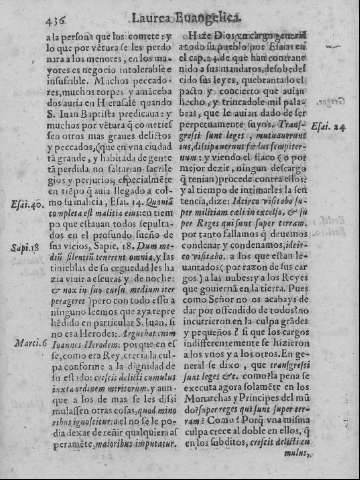 436 Laurea Euangelica.
a la persona que los comete: y
lo que por vẽtura se les perdo
nara a los menores, en los ma
yores es negocio intolerable e
insufrible. Muchos peccado-
res, muchos torpes y amãceba
dos auria en Hierusalẽ quando
S. Iuan Baptista predicaua: y
muchos por vẽtura q̃ cometies
sen otros mas graues delictos
y peccados, (que en vna ciudad
tã grande, y habitada de gente
tã perdida no faltarian sacrile
gios y perjurios, especialmẽte
en tiẽpo q̃ auia llegado a col-
mo su malicia, Esai. 14. Quoniã
completa est malitia eius: en tiem
po que estauan todos sepulta-
dos en el profundo sueño de
sus vicios, Sapie. 18. Dum me-
diũ silentiũ tenerent omnia, y las
tinieblas de su ceguedad les ha
zia viuir a escuras y de noche:
& nox in suo cursu medium iter
perageret) pero con todo esso a
ninguno leemos que aya repre
hẽdido en particular S. Iuan, si
no era a Herodes. Arguebat enim
Ioannes Herodem: porque en es
se, como era Rey, crecia la cul-
pa conforme a la dignidad de
su estado: crescit delicti cumulus
iuxta ordinem meritorum: y aun-
que a los de mas se les dissi
mulassen otras cosas, quod mino
ribus ignoscitur: a el no se le po-
dia dexar de reñir qualquiera as
peramẽte, maioribus imputatur.
Esai. 40.
Sapi. 18
Marci. 6
Haze Dios, en cargo general
a todo su pueblo por Esaias en
el cap. 24. de que han contraue
nido a sus mandatos, desobedel
cido sus leyes, quebrantado el
pacto y concierto que auian
hecho, y trincadole mil pala-
bras, que le auian dado de ser
perpetuamente suyos. Trans-
gressi sunt leges, mutauerunt
ius, dissipauerunt fœdus sempiter-
num: y viendo el flaco (o por
mejor dezir, ningun descargo
q̃ tenian) procede contra ellos:
y al tiempo de intimarles la sen
tencia, dize: Idcirco visitabo su-
per militiam cœli in excelso, & su
per Reges qui sunt super terram.
por tanto fallamos q̃ deuemos
condenar y condenamos, idcir-
co visitabo. a los que estan le-
uantados (por razon de sus car
gos) a las nubes: y a los Reyes
que gouiernã en la tierra. Pues
como Señor no os acabays de
dar por offendido de todos? no
incurrieron en la culpa grãdes
y pequeños? si que los cargos
indifferentemente se hizieron
a los vnos y a los otros. En gene
ral se dixo, que transgressi
sunt leges &c. como? la pena se
executa agora solamẽte en los
Monarchas y Principes del mũ
do? super reges qui sunt super ter-
ram? Como? Porq̃ vna misma
culpa crece al doble en ellos, q̃
en los subditos, crescit delicti cu
mulus,
Esai. 24